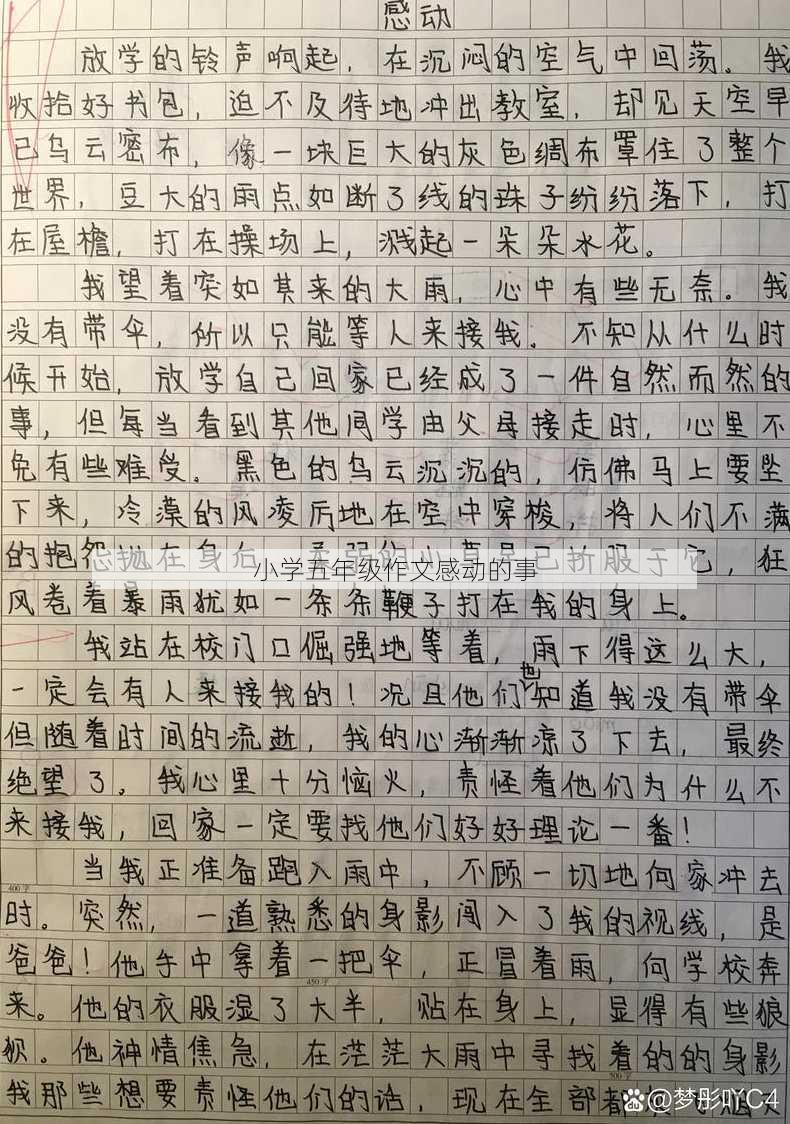 感动
放学的铃声响起，在沉闷的空气中回荡。我
收拾好书包，迫不及待地冲出教室，却见天空早
已乌云密布，像一块巨大的灰色绸布罩住了整个
世界，豆大的雨点如断了线的珠子纷纷落下，打
在屋檐，打在操场上，溅起一朵朵水花。
我望着突如其来的大雨，心中有些无奈。我
没有带伞，所以只能等人来接我。不知从什么时
候开始，放学自己回家已经成了一件自然而然的
事，但每当看到其他同学由父母接走时，心里不
免有些难受。黑色的乌云沉沉的，仿佛马上要坠
下来，冷漠的风凌厉地在空中穿梭，将人们不满
的抱怨抛在身后，它，狂
小学五年级作文感动的事
风卷着暴雨犹如一条条鞭子打在我的身上。
我站在校门口倔强地等着，雨下得这么大，
一定会有人来接我的！况且他们也知道我没有带伞
但随着时间的流逝，我的心渐渐凉了下去，最终
绝望了。我心里十分恼火，责怪着他们为什么不
来接我，回家一定要找他们好好理论一番！
当我正准备跑入雨中，不顾一切地向家冲去
400字
时。突然，一道熟悉的身影闯入了我的视线，是
爸爸！他手中拿着一把伞，正冒着雨，向学校奔
450字
来。他的衣服湿了大半，贴在身上，显得有些狼
狈。他神情焦急，在茫茫大雨中寻找着的的身影
500字
我那些想要责怪他们的话，现在全部都
@梦彤吖C4